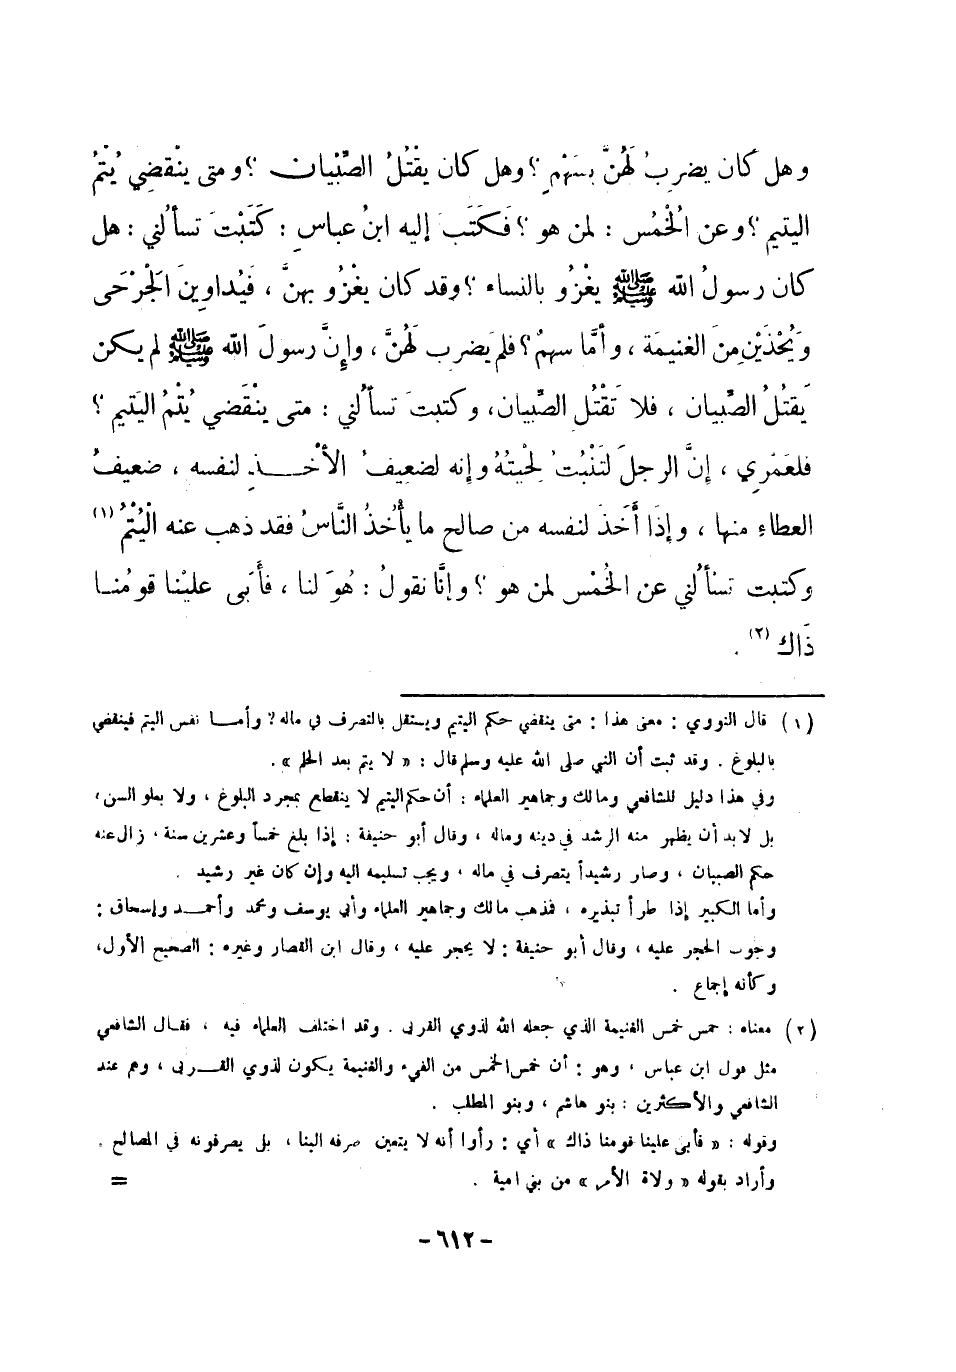 وهل كان يضربُ لَهُنَّ بسَهْمٍ ؟ وهل كان يقْتُلُ الصِّبْيان ؟ ومتى ينْقضِي يُتْمُ
اليتيم ؟ وعن الُخمُس : لمن هو ؟ فَكَتَبَ إليه ابنُ عباسٍ : كَتَبْتَ تسألُني : هل
كان رسولُ الله ﷺ يغْزُو بالنساء ؟ وقد كان يغْزُو بهنَّ ، فَيُداوِينَ الَجْرْحَى
وَيُحْذَيْنَ مِنَ الغنيمَة ، وأمَّا سهمٌ ؟ فلم يَضرب لَهُنَّ ، وإنَّ رسولَ الله ﷺ لم يكن
يَقتُلُ الصِّبيان ، فلا تَقْتُل الصِّبيان، وكتبتَ تسألُني : متى ينْقَضي يُتْمُ اليَتيم ؟
فلعَمْرِي ، إنَّ الرجلَ لتَنْبُتُ لحْيَتُهُ وإنه لضعيفُ الأخْـــذِ لنفسه ، ضعيفُ
العطاءِ منها ، وإذَا أَخَذَ لنفسه من صالح ما يأْخُذُ النَّاسُ فقد ذهب عنه الْيُتْمُ (١)
وكتبت تسْألُني عن الخُمْس لمن هو ؟ وإنَّا نقولُ : هُوَ لنا ، فأَبَى علينْا قومُنــا
ذَاكَ (٢) .
(١) قال النووي : معنى هذا : متى ينقضي حكم اليتيم ويستقل بالتصرف في ماله ؟ وأمــا نفس اليتم فينقضي
بالبلوغ . وقد ثبت أن النبي صلى الله عليه وسلم قال : « لا يتم بعد الحلم » .
وفي هذا دليل للشافعي ومالك وجماهير العلماء : أن حكم اليتيم لا ينقطع بمجرد البلوغ ، ولا بعلو السن ،
بل لابد أن يظهر منه الرشد في دينه وماله ، وقال أبو حنيفة : إذا بلغ خمساً وعشرين سنة ، زال عنه
حكم الصبيان ، وصار رشيداً يتصرف في ماله ، ويجب تسليمه اليه وإن كان غير رشيد .
وأما الكبير إذا طرأ تبذيره ، فمذهب مالك وجماهير العلماء وأبي يوسف ومحمد وأحمـد وإسحاق :
وجوب الحجر عليه ، وقال أبو حنيفة : لا يحجر عليه ، وقال ابن القصار وغيره : الصحيح الأول،
وكأنه إجماع .
(٢) معناه : خمس خمس الغنيمة الذي جعله الله لذوي القربى . وقد اختلف العلماء فيه ، فقـال الشافعي
مثل قول ابن عباس ، وهو : أن خمس الخمس من الفيء والغنيمة يكون لذوي القــربى ، وهم عند
الشافعي والأكثرين : بنو هاشم ، وبنو المطلب .
وقوله : « فأبى علينا قومنا ذاك » أي : رأوا أنه لا يتعين صرفه الينا ، بل يصرفونه في المصالح .
وأراد بقوله « ولاة الأمر » من بني امية .
=
- ٦١٢ -